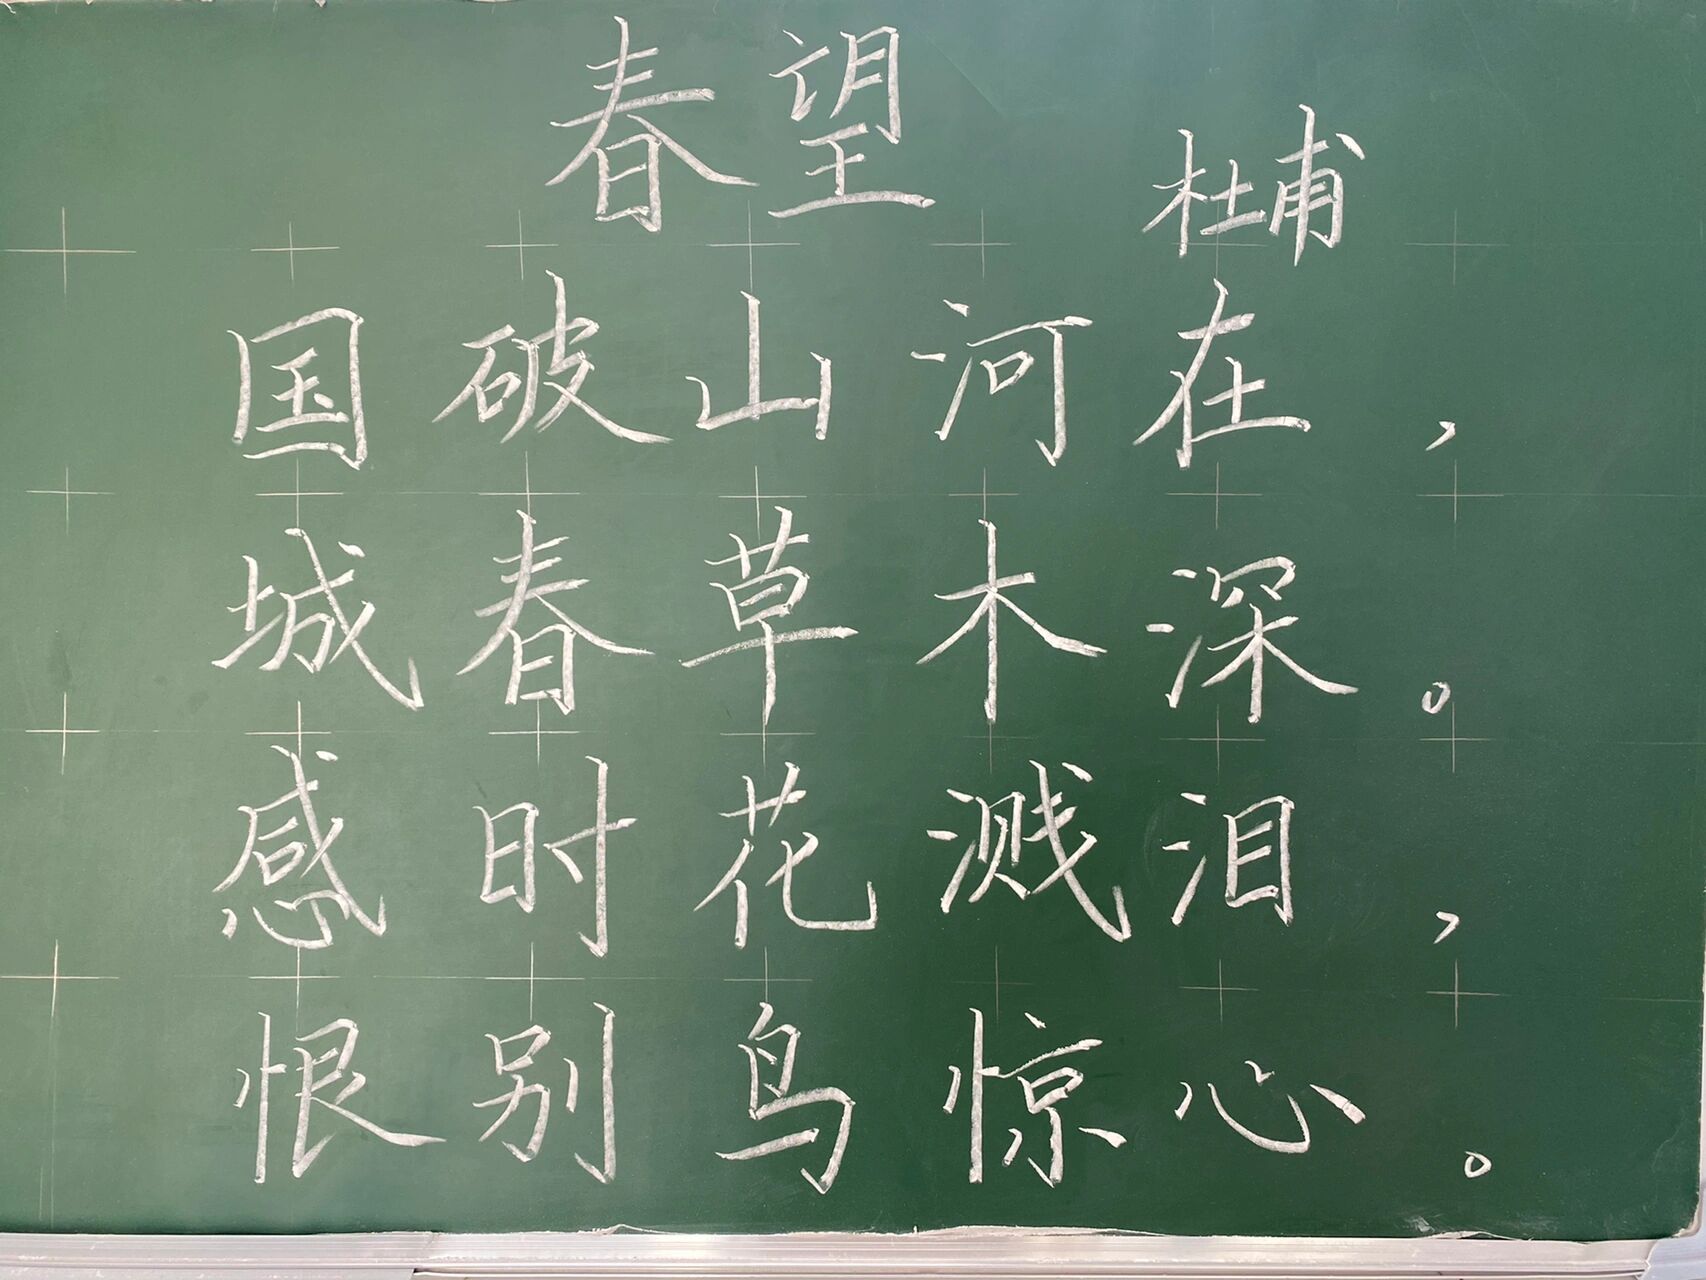 春望
杜甫
国破山河在，
城春草木深。
感时花溅泪，
恨别鸟惊心。